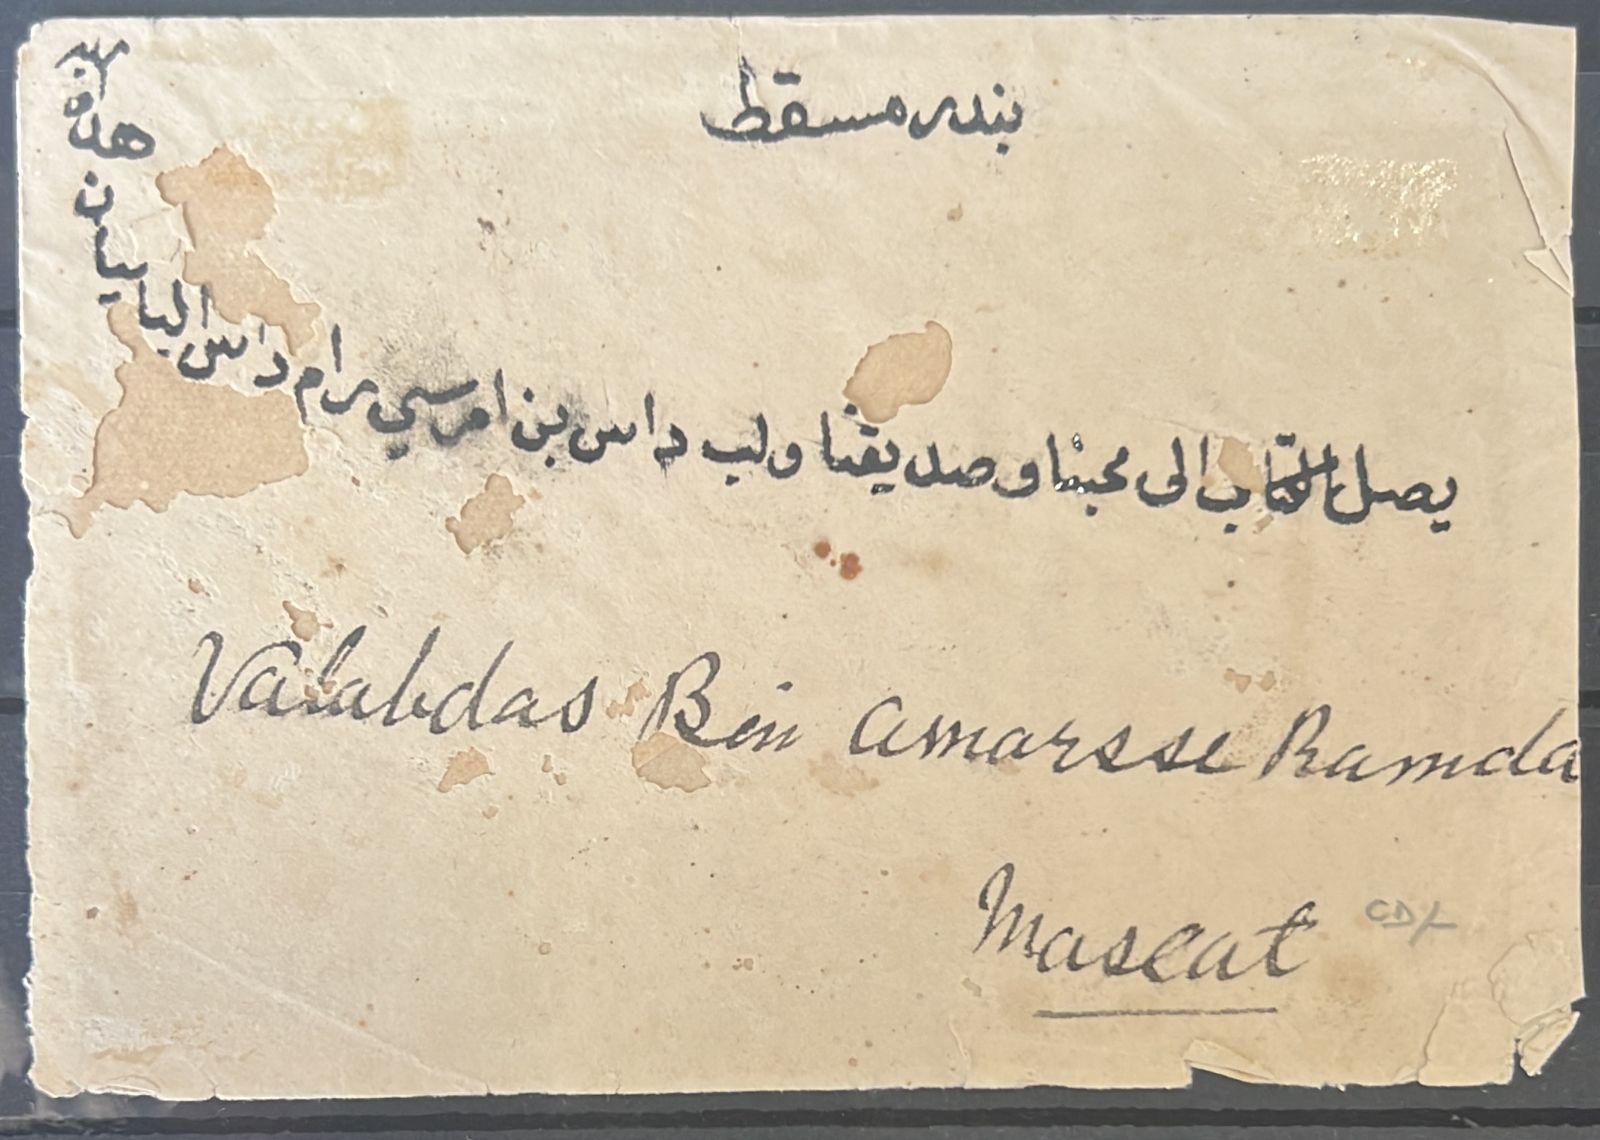 بندر مسقط
يصل الكتاب الى محبنا وصديقنا ولب داس بن امرسي رام داس البانيان
Valabdas Bin Amarsse Ramda
Mascat
CD/